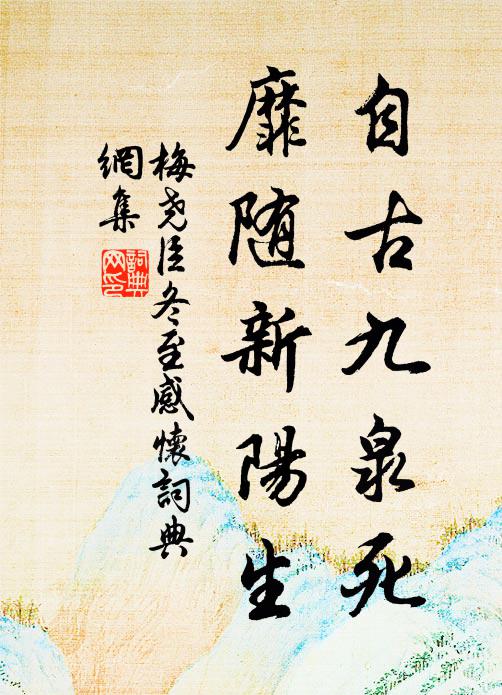 自古九泉死
靡随新陽生
梅尧臣冬至感懷詞典
網集
詞典
网印